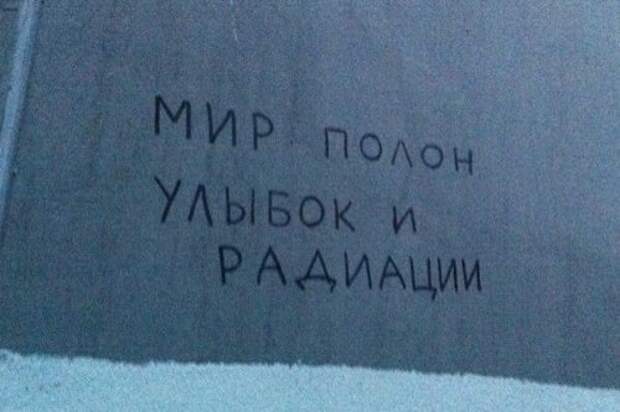 МИР ПОЛОН
УЛЫБОК И
РАДИАЦИИ